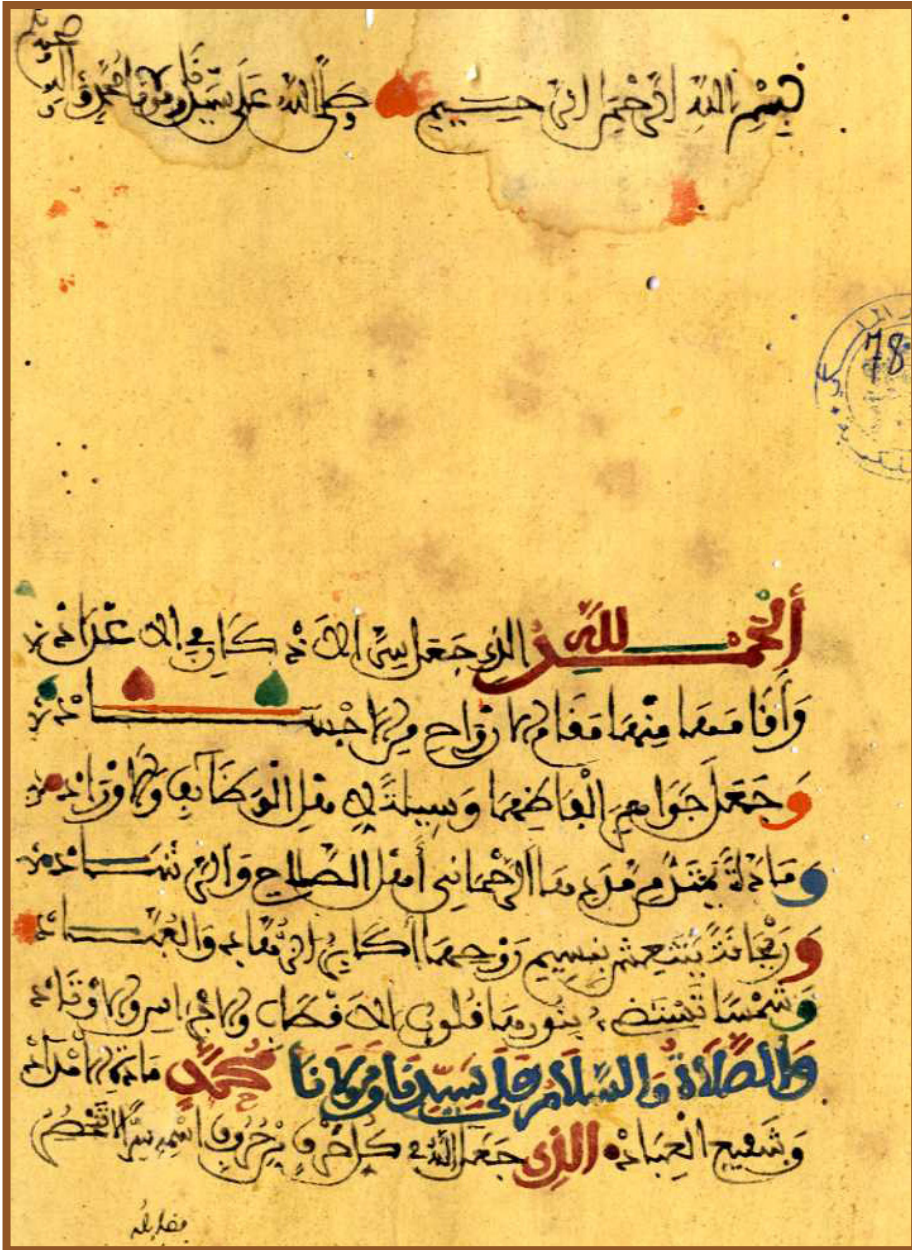 بِسْمِ اللهِ الرَّحْمٰنِ الرَّحِيمِ وَصَلَّى اللهُ عَلَى سَيِّدِنَا وَمَوْلَانَا مُحَمَّدٍ وَآلِهِ
أَلْحَمْدُ لِلهِ الذِي جَعَلَ سِرَّ في الاعْدَادِ
وَأَقَامَهَا مِنْهَا مَقَامَ الارْوَاحِ مِنَ الاجْسَادِ
وَجَعَلَ جَوَاهِرَ أَلْفَاظِهَا وَسِيلَةً لِأَهْلِ الْوَظَائِفِ وَالاوْرَادِ
وَمَائِدَةً يَمْتَدُّ مِنْ مَدَدِهَا الرَّحْمَانِي أَهْلُ الصَّلَاحِ وَالرَّشَادِ
وَرَيْحَانَةً يَنْتَعِشُ بِنَسِيمِ رَوْحِهَا أَكَابِرُ الزُّهَّادِ وَالْعُبَّادِ
وَشَمْسًا تَسْتَضِيءُ بِنُورِهَا قُلُوبُ الاقْطَابِ وَالاجْرَاسِ وَالاوْتَادِ
وَالصَّلَاةُ وَالسَّلَامُ عَلَى سَيِّدِنَا وَمَوْلَانَا مُحَمَّدٍ مَادَّةِ الامْدَادِ
وَشَفِيعِ الْعِبَادِ الذِي جَعَلَ اللهُ فِي كُلِّ حَرْفٍ مِنْ حُرُوفِ اسْمِهِ سِرًّا لَا تُحْصَى
فضائله
78